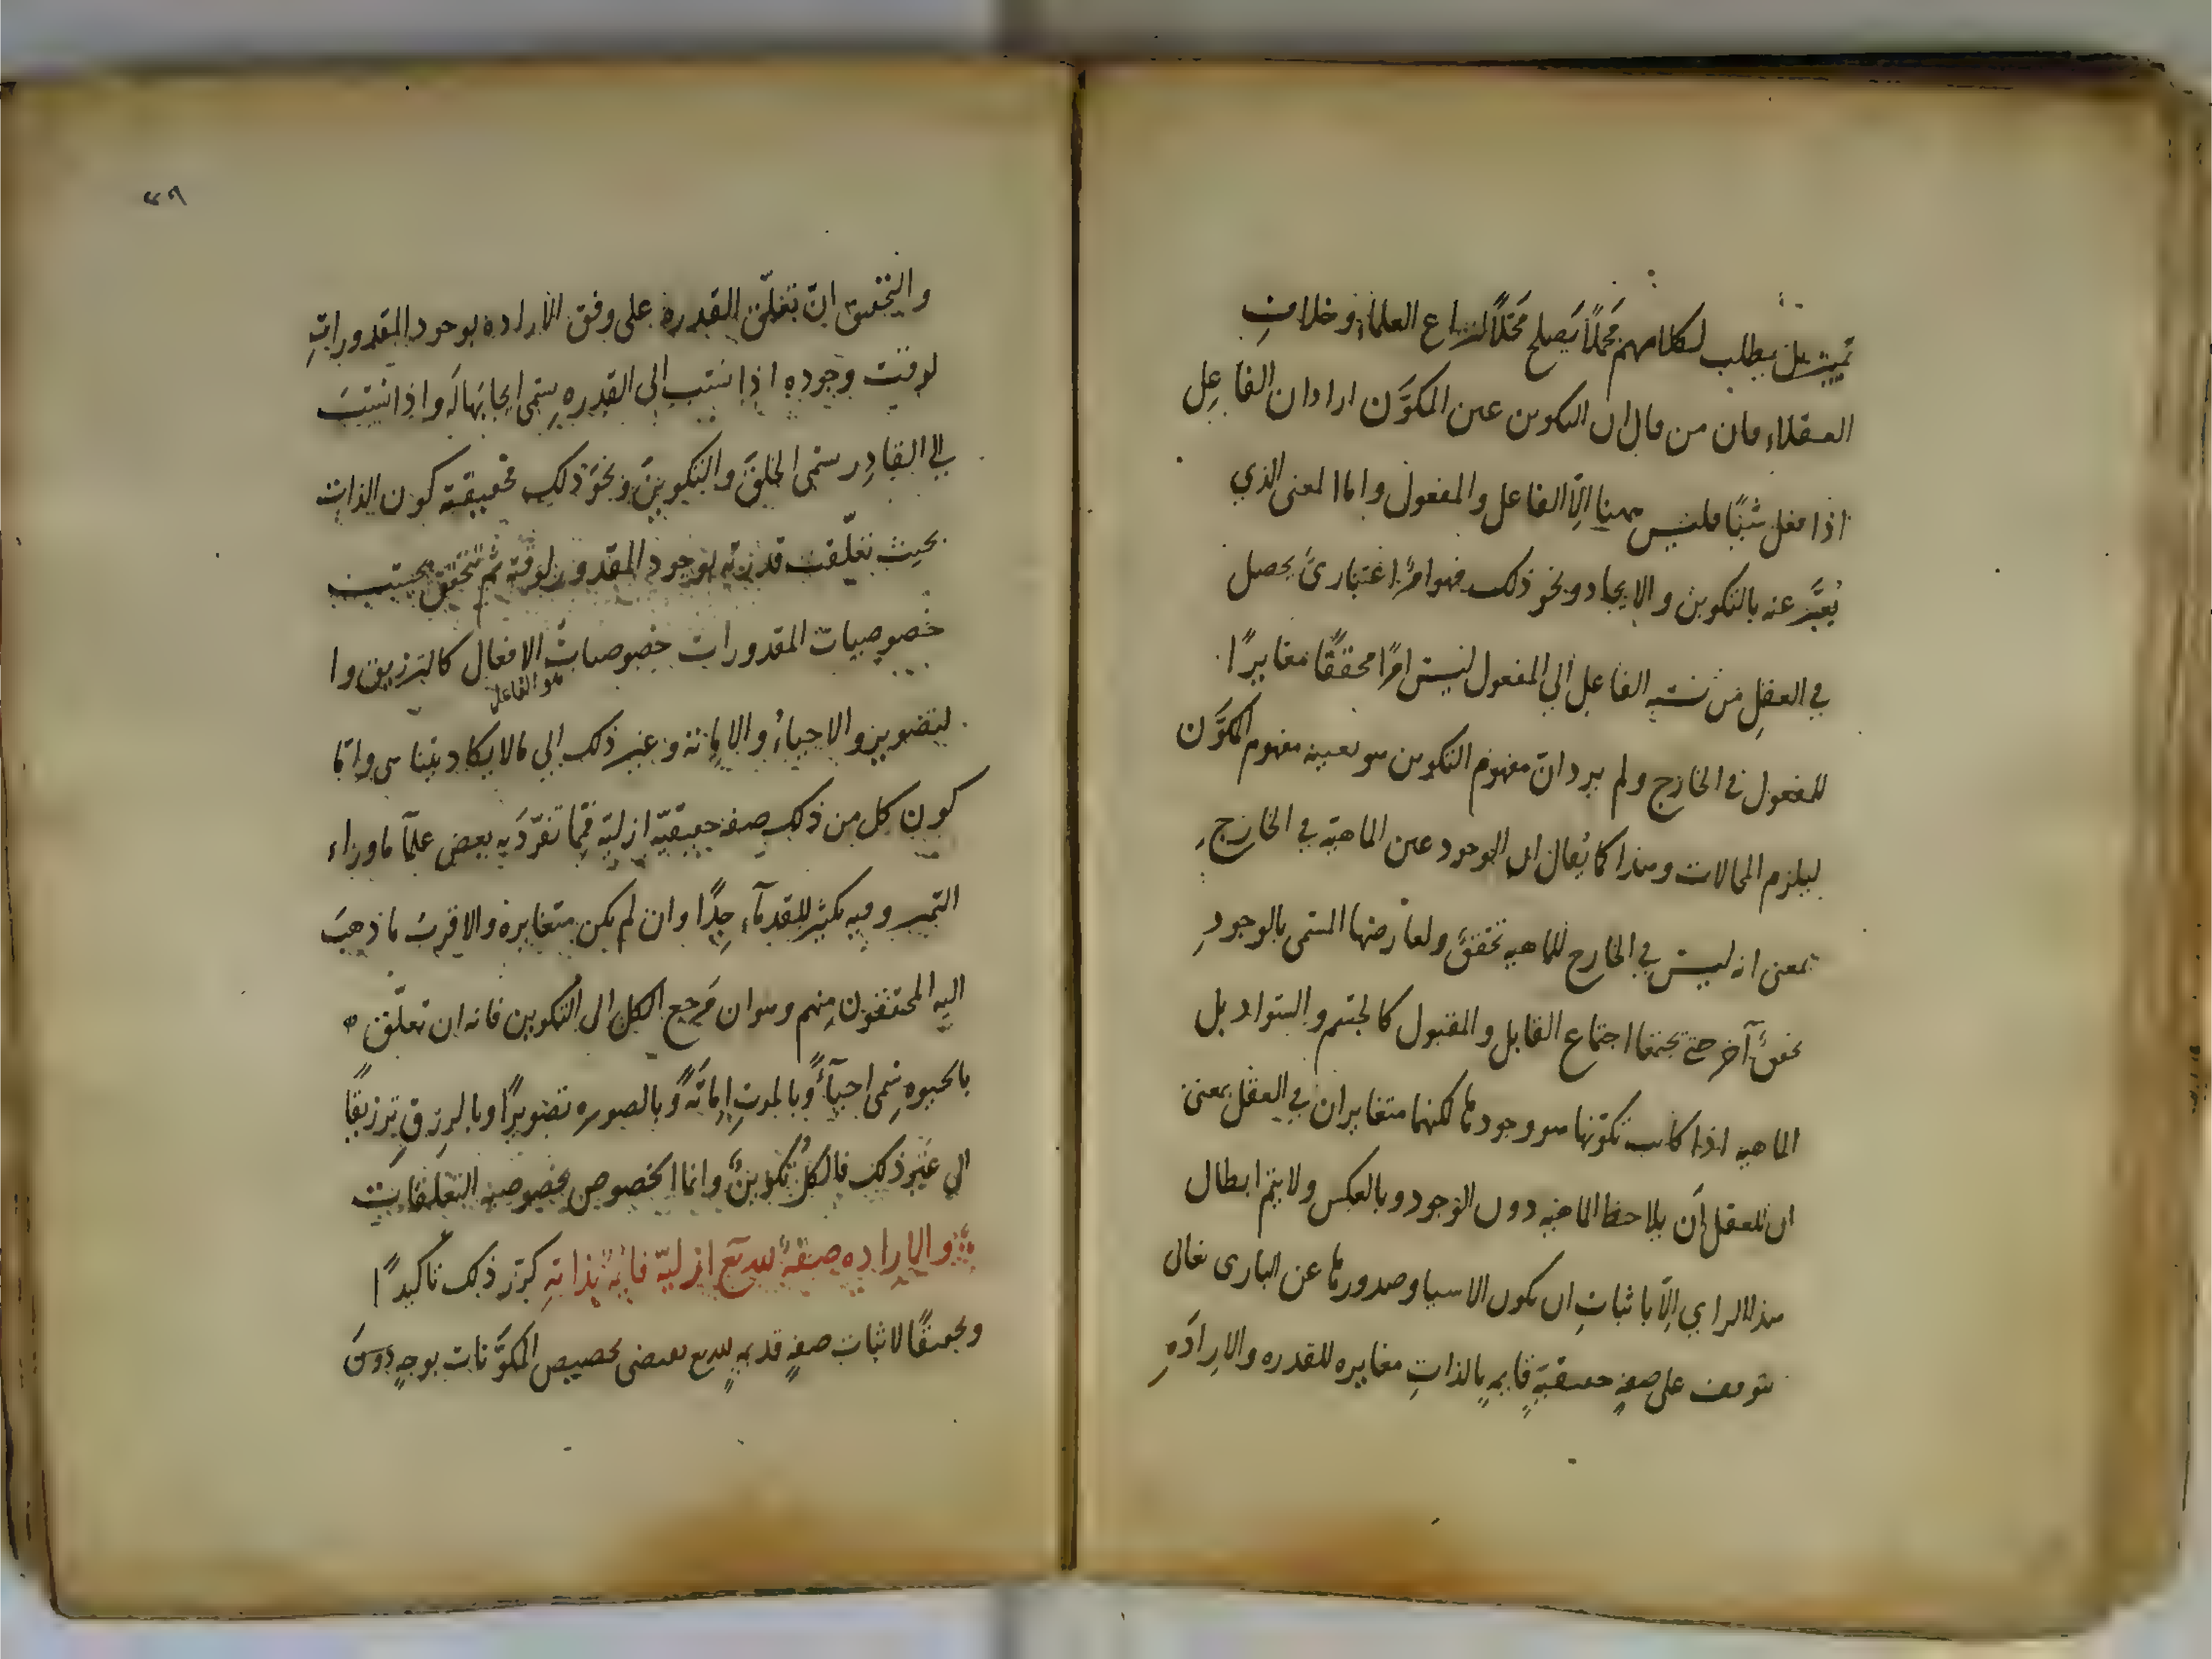 تميز بل يطلب لكلامهم مَحْمَلًا يَصلح مَحَلًّا لنزاع العلماء وخلافِ
العقلاء فان من قال ان التكوين عين المكوَّن اراد ان الفاعِل
اذا فعل شيئًا فليس ههنا اِلّا الفاعل والمفعول واما المعنى الذي
يُعبَّر عنه بالتكوين والايجاد ونحو ذلك فهو امرٌ اعتباريٌ يحصل
في العقلِ من نسبه الفاعِل الي المفعول ليس امرًا محققًا مغايرًا
للمفعول في الخارج ولم يرد انّ مفهوم التكوين هو بعينه مفهوم المكوَّن
ليلزم المحالات وهذا كما يُقال ان الوجود عين الماهية في الخارجِ
بمعنى انه ليس في الخارج للماهيه تحققٌ ولعارضها المسمى بالوجودِ
تحققٌ آخر حتى يجتمعا اجتماع القابل والمقبول كالجسم والسواد بل
الماهيه اذا كانت تكوّنها هو وجودها لكنهما متغايران في العقل بمعنى
ان للعقل اَن يلاحظ الماهيه دون الوجود وبالعكس ولا يتم ابطال
هذا الراي اِلّا باثباتِ ان تكون الاشيا وصدورها عن البارى تعالى
يتوقف على صفةٍ حقيقيةٍ قايمةٍ بالذاتِ مغايره للقدره والارادَهِ
٢٩
والتحقيق انّ تعلّق القدره على وفق الاراده بوجود المقدوراتِ
لوقت وجوده اذا نسب الى القدره يسمى ايجابها لَه واذا نُسبَ
الى القادِر سمى الخلقَ والتكوينَ ونحوَ ذلك فحقيقته كون الذات
بحيث تعلّقت قدرته بوجود المقدور لوقته ثم تتحقق بحسب
خصوصيات المقدورات خصوصيات الافعال كالترزيق وا
هو الفاعل
لتصوير والاحياء والاماتة وغير ذلك الي مالا يكاد يتناهى وامّا
كون كل من ذلك صفه حقيقيّه ازليّه فمِمّا تفرّدَ به بعض علمآ ماوراء
النهر وفيه تكثير للقدمآء جِدًّا وان لم يكن متغايرة والاقربُ ما ذهبَ
اليه المحققون مِنهم وهو ان مَرجع الكل الى التكوين فانه ان تعلّق
بالحيوه يسمى احيآءً وبالموتِ اِماتَةً وبالصوره تصويرًا وبالرزقِ ترزيقًا
الي غيرِ ذلك فالكلُّ تكوينٌ وانما الخصوص بخصوصيه التعلّقاتِ
والاراده صفةٌ لله تع ازليّه قائمةٌ بذاتِهِ كرّر ذلك تاكيدًا
وتحقيقًا لاثبات صفةٍ قديمةٍ لله تع تقتضى تخصيص المكوَّنات بوجهٍ دونَ